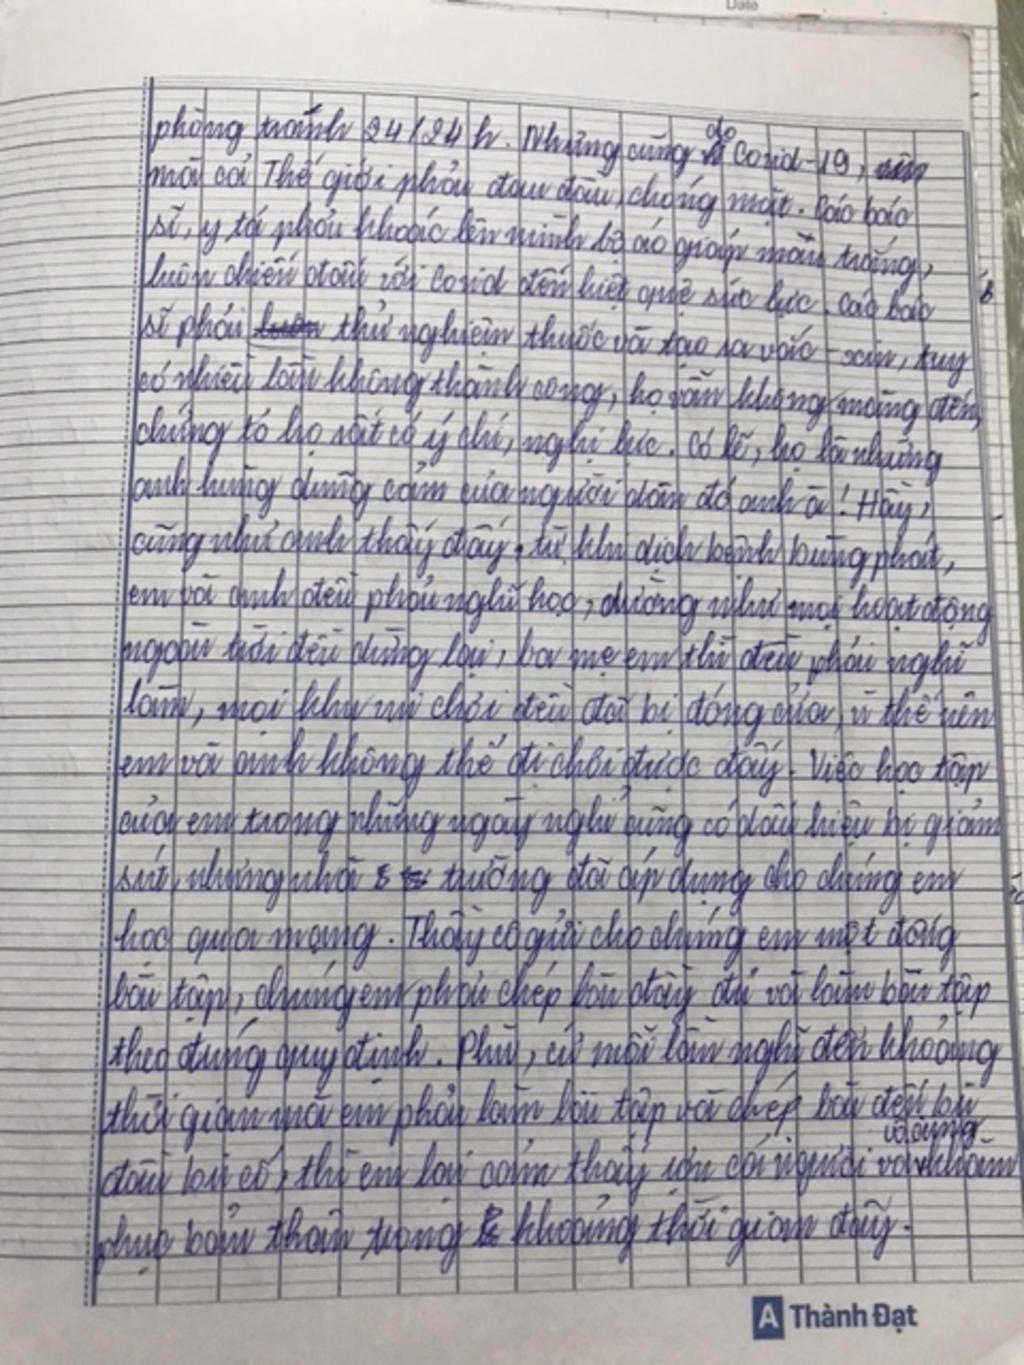 Date
phòng tránh 24/24h. Nhưng cũng do Covid-19,
mà cả Thế giới phải đau đầu, chóng mặt. Các bác
sĩ, y tá phải khoác lên mình bộ áo giáp màu trắng,
luôn chiến đấu với Covid đến kiệt quệ sức lực. Các bác
sĩ phải thử nghiệm thuốc và tạo ra vắc-xin, tuy
có nhiều lần không thành công, họ vẫn không màng đến,
chứng tỏ họ rất có ý chí, nghị lực. Có lẽ, họ là những
anh hùng dũng cảm của người dân đó anh ạ! Hầy,
cũng như anh thấy đấy, từ khi dịch bệnh bùng phát,
em và anh đều phải nghỉ học, dường như mọi hoạt động
ngoài trời đều dừng lại, ba mẹ em thì đều phải nghỉ
làm, mọi khu vui chơi đều đã bị đóng cửa, vì thế nên
em và anh không thể đi chơi được đấy. Việc học tập
của em trong những ngày nghỉ cũng có dấu hiệu bị giảm
sút, nhưng nhà trường đã áp dụng cho chúng em
học qua mạng. Thầy cô gửi cho chúng em một đống
bài tập, chúng em phải chép bài đầy đủ và làm bài tập
theo đúng quy định. Phù, cứ mỗi lần nghĩ đến khoảng
thời gian mà em phải làm bài tập và chép bài đến bù
đầu bù cổ, thì em lại cảm thấy rợn cả người và vô cùng khâm
phục bản thân trong khoảng thời gian đấy.
A Thành Đạt